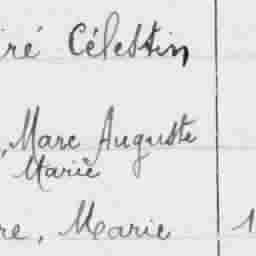 iré Célestin
, Marc Auguste
Marie
re, Marie 1